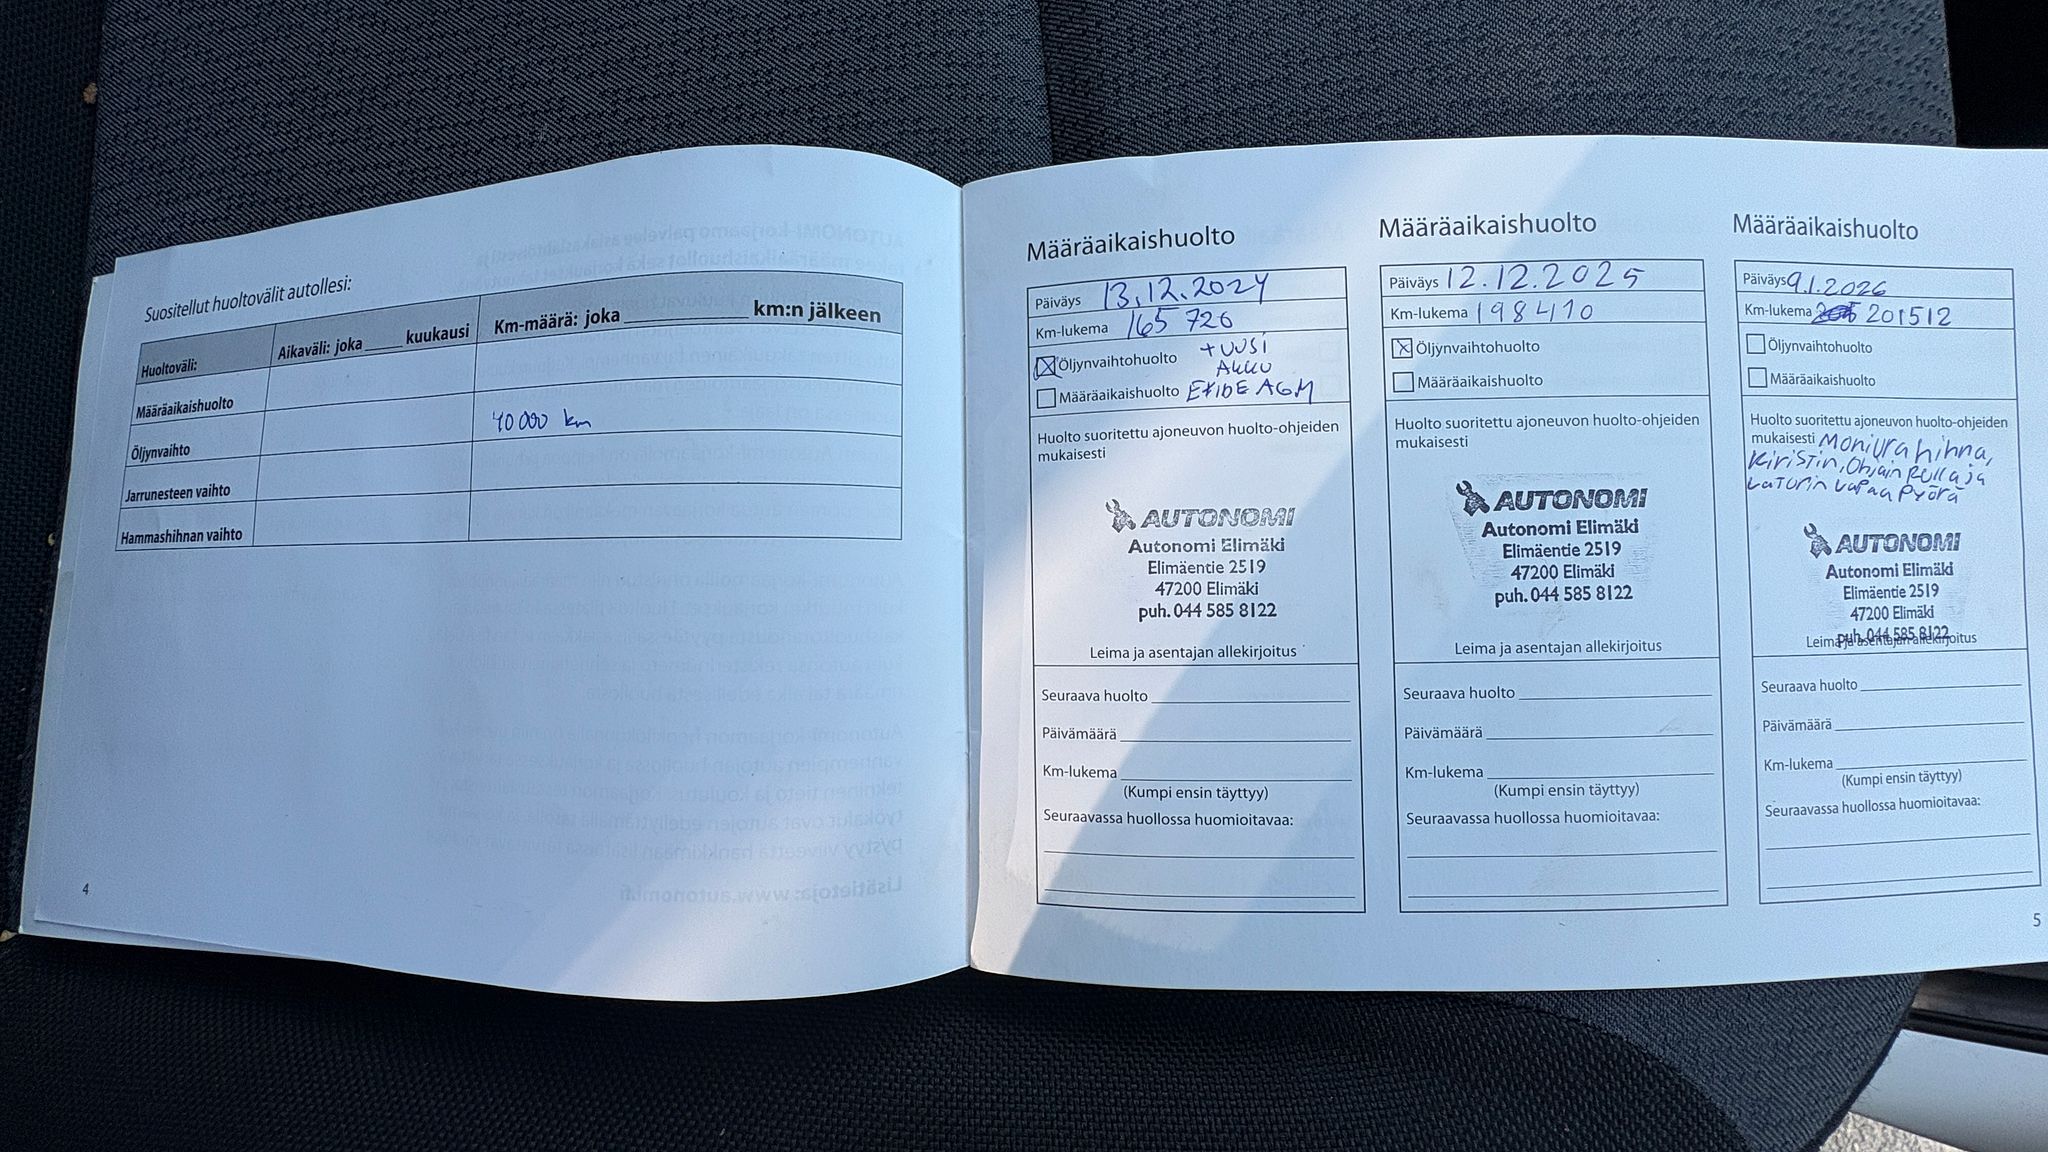 Suositellut huoltovälit autollesi:
Huoltoväli: Aikaväli: joka _____ kuukausi Km-määrä: joka _____________ km:n jälkeen
Määräaikaishuolto
Öljynvaihto 40 000 km
Jarrunesteen vaihto
Hammashihnan vaihto
Lisätietoja: www.autonomi.fi
4
Määräaikaishuolto
Päiväys 13.12.2024
Km-lukema 165 726
☒ Öljynvaihtohuolto + UUSI
AKKU
☐ Määräaikaishuolto EXIDE AGM
Huolto suoritettu ajoneuvon huolto-ohjeiden
mukaisesti
AUTONOMI
Autonomi Elimäki
Elimäentie 2519
47200 Elimäki
puh. 044 585 8122
Leima ja asentajan allekirjoitus
Seuraava huolto
Päivämäärä
Km-lukema
(Kumpi ensin täyttyy)
Seuraavassa huollossa huomioitavaa:
Määräaikaishuolto
Päiväys 12.12.2025
Km-lukema 198410
☒ Öljynvaihtohuolto
☐ Määräaikaishuolto
Huolto suoritettu ajoneuvon huolto-ohjeiden
mukaisesti
AUTONOMI
Autonomi Elimäki
Elimäentie 2519
47200 Elimäki
puh. 044 585 8122
Leima ja asentajan allekirjoitus
Seuraava huolto
Päivämäärä
Km-lukema
(Kumpi ensin täyttyy)
Seuraavassa huollossa huomioitavaa:
Määräaikaishuolto
Päiväys 9.1.2026
Km-lukema 201512
☐ Öljynvaihtohuolto
☐ Määräaikaishuolto
Huolto suoritettu ajoneuvon huolto-ohjeiden
mukaisesti Moniurahihna,
Kiristin, Ohjainrulla ja
Laturin vapaapyörä
AUTONOMI
Autonomi Elimäki
Elimäentie 2519
47200 Elimäki
puh. 044 585 8122
Leima ja asentajan allekirjoitus
Seuraava huolto
Päivämäärä
Km-lukema
(Kumpi ensin täyttyy)
Seuraavassa huollossa huomioitavaa:
5